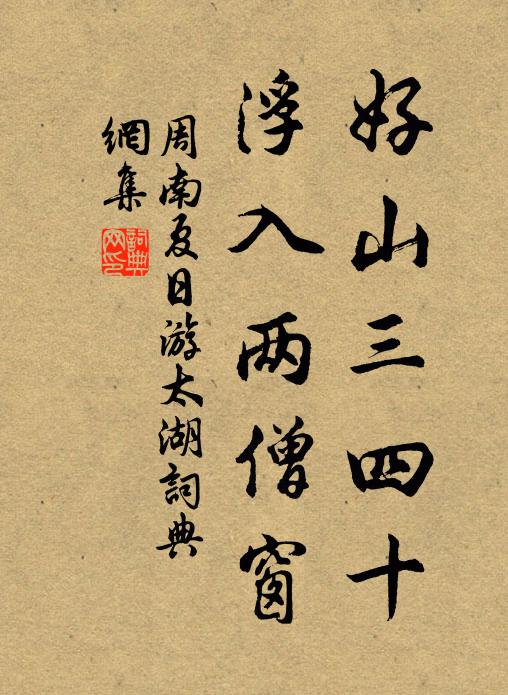 好山三四十
浮入两僧窗
周南夏日游太湖詞典
網集
詞典
网印